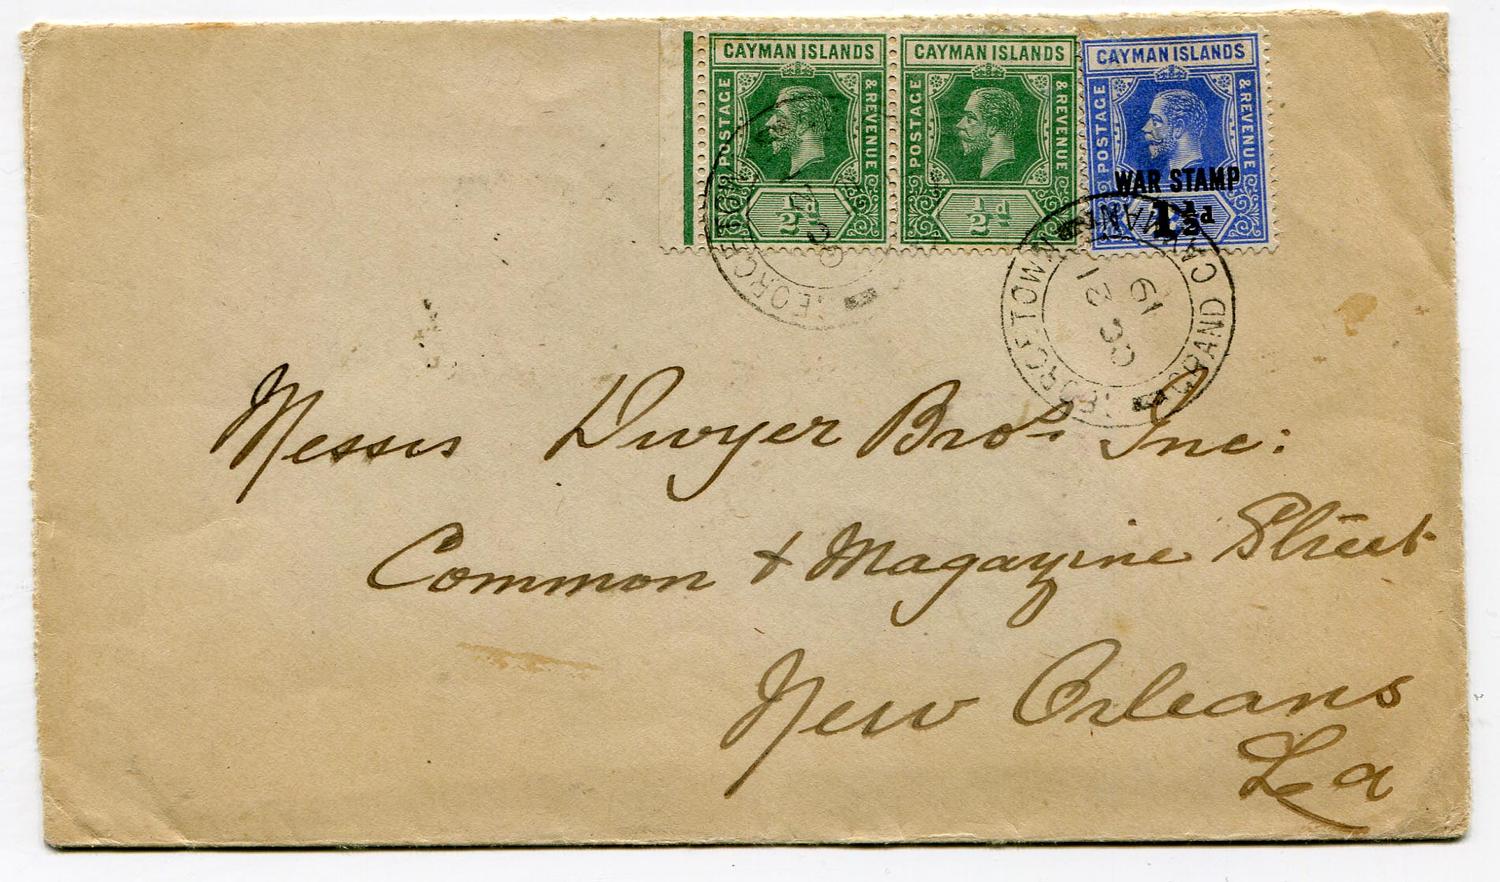 CAYMAN ISLANDS
POSTAGE
& REVENUE
½d
CAYMAN ISLANDS
POSTAGE
& REVENUE
½d
CAYMAN ISLANDS
POSTAGE
& REVENUE
WAR STAMP
1½d
GEORGETOWN
GRAND CAYMAN
OC
21
19
Messrs Dwyer Bros Inc:
Common & Magazine Street
New Orleans
La